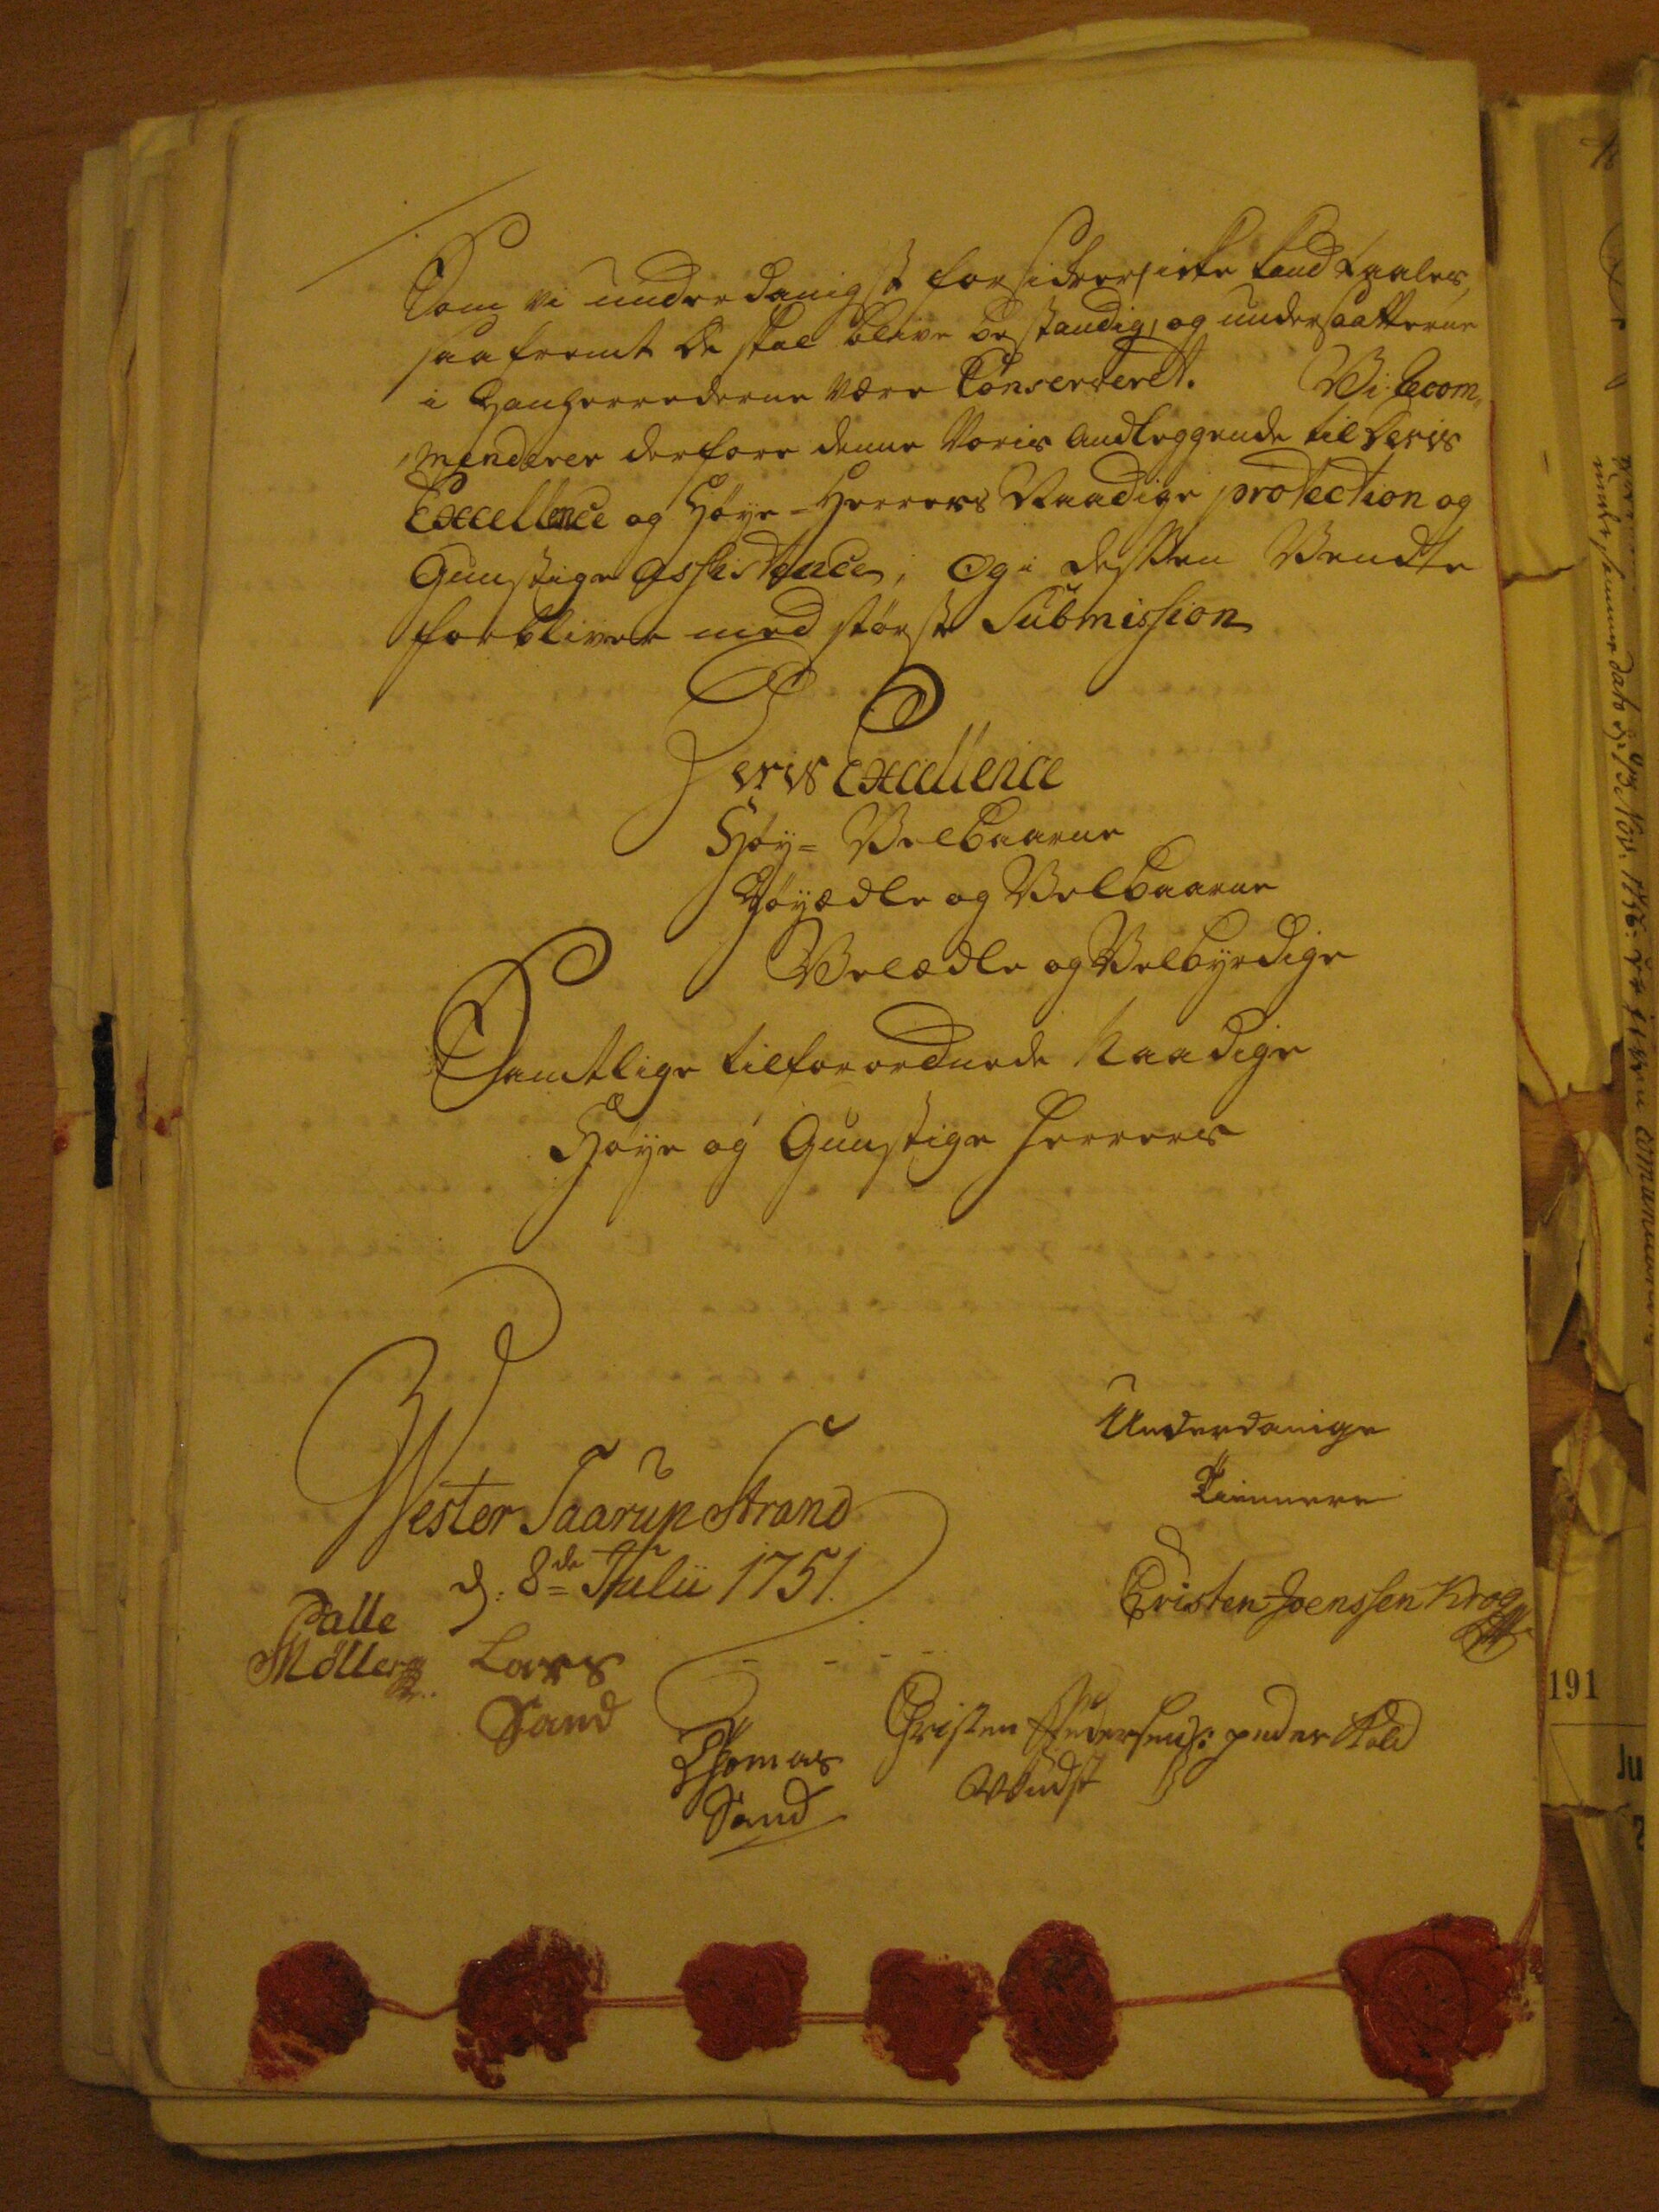 Som vi underdanigst forsikrer icke kand taales,
saafremt de skal blive bestandig, og undersaatterne
i Hanherrederne være Conserveret. Vi Recom„
„menderer derfore denne Voris Andleggende til Deris
Excellence og Høye-Herrers Naadige protection og
Gunstige assistence, Og i desSen Vendte
forbliver med største Submission
Deris Excellence
Høy= Velbaarne
Høyædle og Velbaarne
Velædle og Velbyrdige
Samtlige tilforordnede Naadige
Høye og Gunstige Herrers
Wester Taarup Strand
d: 8de Julii 1751.
Underdanige
Tiennere
Christen Joenssen Krog
Palle
Møller
Lars
Sand
Thomas
Sand
Christen Pedersen
Wüdst
peder Kold
191
Ju
2